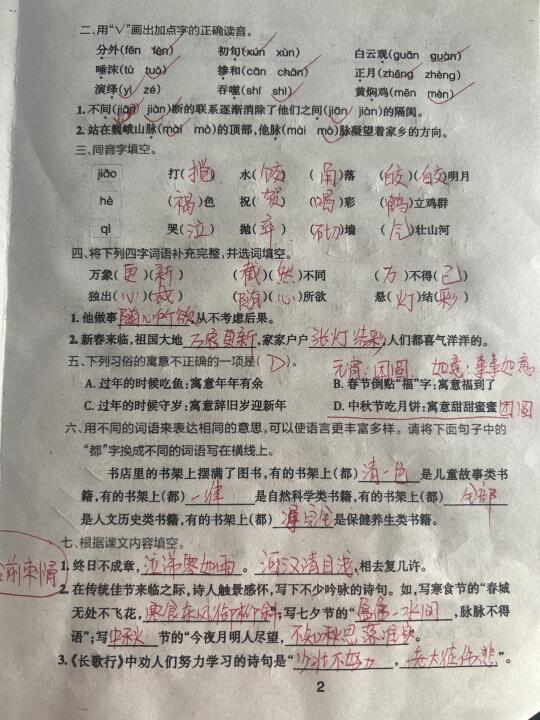 二、用“√”画出加点字的正确读音。
分外(fēn fèn) 初旬(xún xùn) 白云观(guān guàn)
唾沫(tù tuò) 掺和(cān chān) 正月(zhēng zhèng)
演绎(yì zé) 吞噬(shí shì) 黄焖鸡(mēn mèn)
1. 不间(jiān jiàn)断的联系逐渐消除了他们之间(jiān jiàn)的隔阂。
2. 站在巍峨山脉(mài mò)的顶部,他脉(mài mò)脉凝望着家乡的方向。
三、同音字填空。
jiǎo 打(搅) 水(饺) (角)落 (皎)(皎)明月
hè (褐)色 祝(贺) (喝)彩 (鹤)立鸡群
qì 哭(泣) 抛(弃) (砌)墙 (气)壮山河
四、将下列四字词语补充完整,并选词填空。
万象(更)(新) (截)(然)不同 (万)不得(已)
独出(心)(裁) (随)(心)所欲 悬(灯)结(彩)
1. 他做事随心所欲,从不考虑后果。
2. 新春来临,祖国大地万象更新,家家户户张灯结彩,人们都喜气洋洋的。
五、下列习俗的寓意不正确的一项是(D)。 元宵:团圆 如意:事事如意
A. 过年的时候吃鱼:寓意年年有余 B. 春节倒贴“福”字:寓意福到了
C. 过年的时候守岁:寓意辞旧岁迎新年 D. 中秋节吃月饼:寓意甜甜蜜蜜 团圆
六、用不同的词语来表达相同的意思,可以使语言更丰富多样。请将下面句子中的
“都”字换成不同的词语写在横线上。
书店里的书架上摆满了图书,有的书架上(都)清一色是儿童故事类书
籍,有的书架上(都)一律是自然科学类书籍,有的书架上(都)全部
是人文历史类书籍,有的书架上(都)是保健养生类书籍。
七、根据课文内容填空。
1. 终日不成章,泣涕零如雨。河汉清且浅,相去复几许。
2. 在传统佳节来临之际,诗人触景感怀,写下不少吟咏的诗句。如,写寒食节的“春城
无处不飞花,寒食东风御柳斜”;写七夕节的“盈盈一水间,脉脉不得
语”;写中秋节的“今夜月明人尽望,不知秋思落谁家”。
3.《长歌行》中劝人们努力学习的诗句是“少壮不努力,老大徒伤悲”。
2